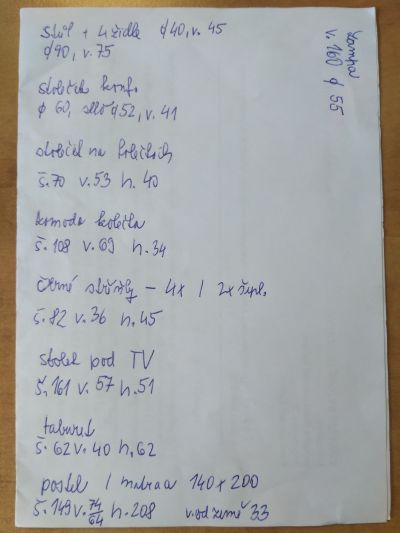 stůl + 4 židle ∅40, v. 45
∅90, v. 75
stoleček konf.
∅ 60, sklo ∅52, v. 41
stoleček na kolečkách
š. 70 v. 53 h. 40
komoda kolečka
š. 108 v. 69 h. 34
černé – 4x / 2x
š. 82 v. 36 h. 45
stolek pod TV
š. 161 v. 57 h. 51
taburet
š. 62 v. 40 h. 62
postel / matrace 140 x 200
š. 149 v. 74/64 h. 208 v. od země 33
Lampa
v. 160 ∅ 55